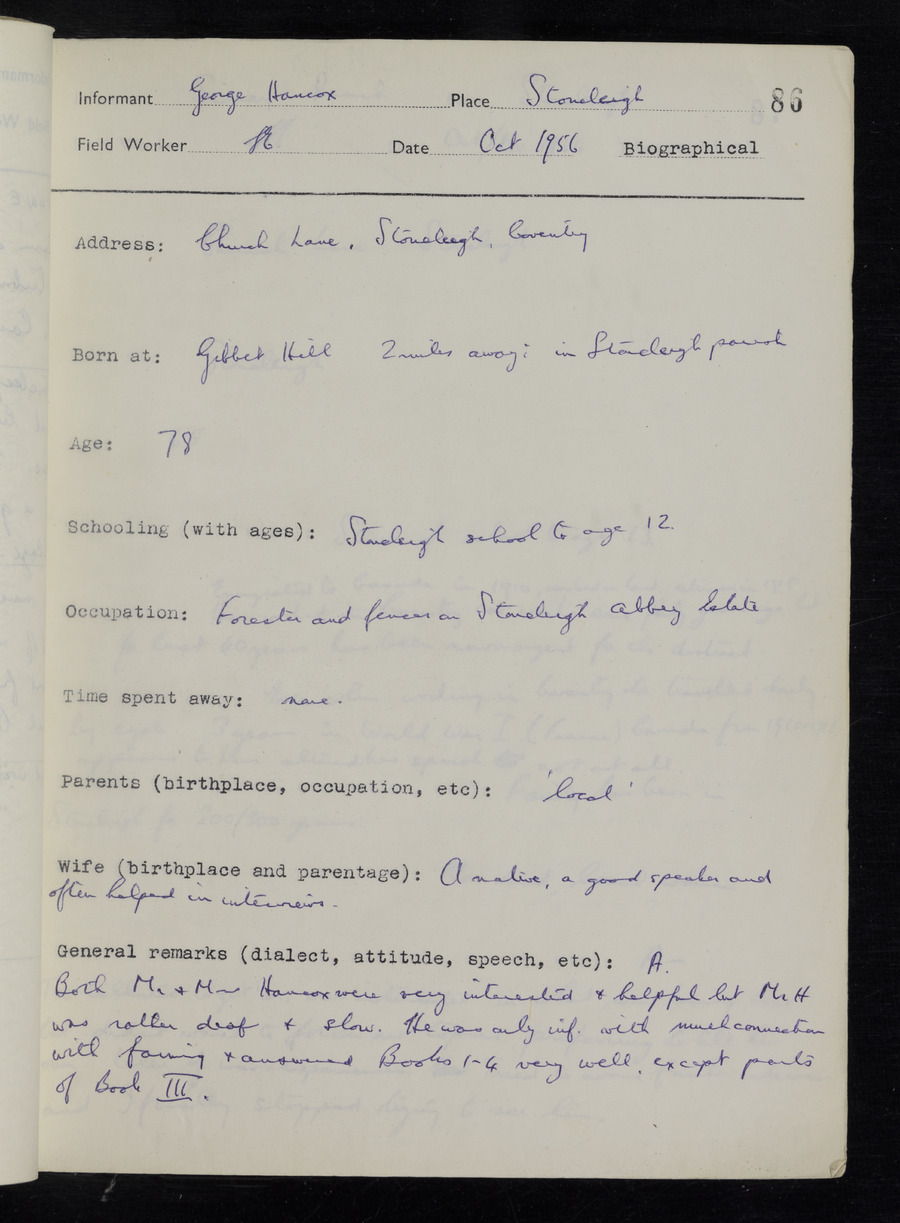 Informant George Hancox Place Stoneleigh 86
Field Worker Date Oct 1956 Biographical
Address: Church Lane, Stoneleigh, Coventry
Born at: Gibbet Hill 2 miles away: in Stoneleigh parish
Age: 78
Schooling (with ages): Stoneleigh school to age 12.
Occupation: Forester and fencer on Stoneleigh Abbey Estate
Time spent away: none.
Parents (birthplace, occupation, etc): 'local'
Wife (birthplace and parentage): A native, a good speaker and
often helped in interviews.
General remarks (dialect, attitude, speech, etc): A.
Both Mr & Mrs Hancox were very interested & helpful but Mr H
was rather deaf & slow. He was only inf. with much connection
with farming & answered Books 1-4 very well, except parts
of Book III.